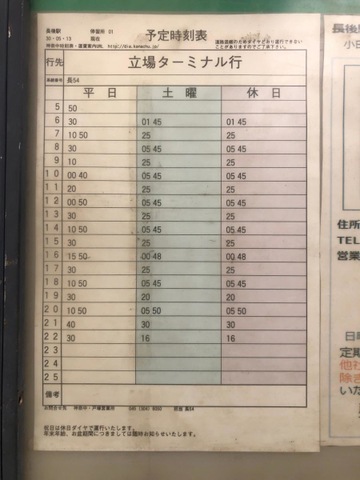 長後駅 停留所 01
30・05・13 現在
予定時刻表
道路混雑のためダイヤどおり運行できない
ことがありますのでご了承下さい。
行先 立場ターミナル行
系統番号 長54
平日 土曜 休日
5 50
6 30 01 45 01 45
7 10 50 25 25
8 30 05 45 05 45
9 10 25 25
10 00 40 05 45 05 45
11 20 25 25
12 00 50 05 45 05 45
13 30 25 25
14 10 50 05 45 05 45
15 30 25 25
16 15 50 00 48 00 48
17 30 25 25
18 10 50 05 45 05 45
19 30 20 20
20 10 50 05 50 05 50
21 40 30 30
22 30 16 16
23
24
25
備考
お問合せ先 神奈中・戸塚営業所 系統 長54
祝日は休日ダイヤで運行いたします。
年末年始、お盆期間につきましては臨時お知らせいたします。
長後駅
小田
住所
TEL
営業
定期
他社
除き
いた